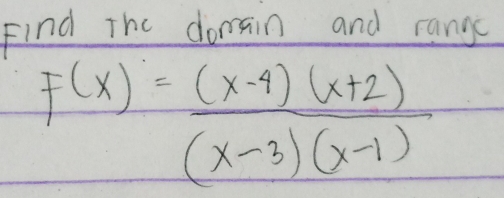 Find The domain and range
F(x) = (x-4) (x+2)
(x-3) (x-1)